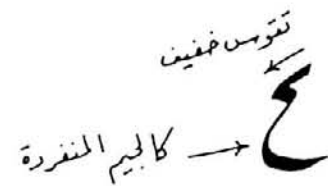 تقوس خفيف
ع
كالجيم المنفردة